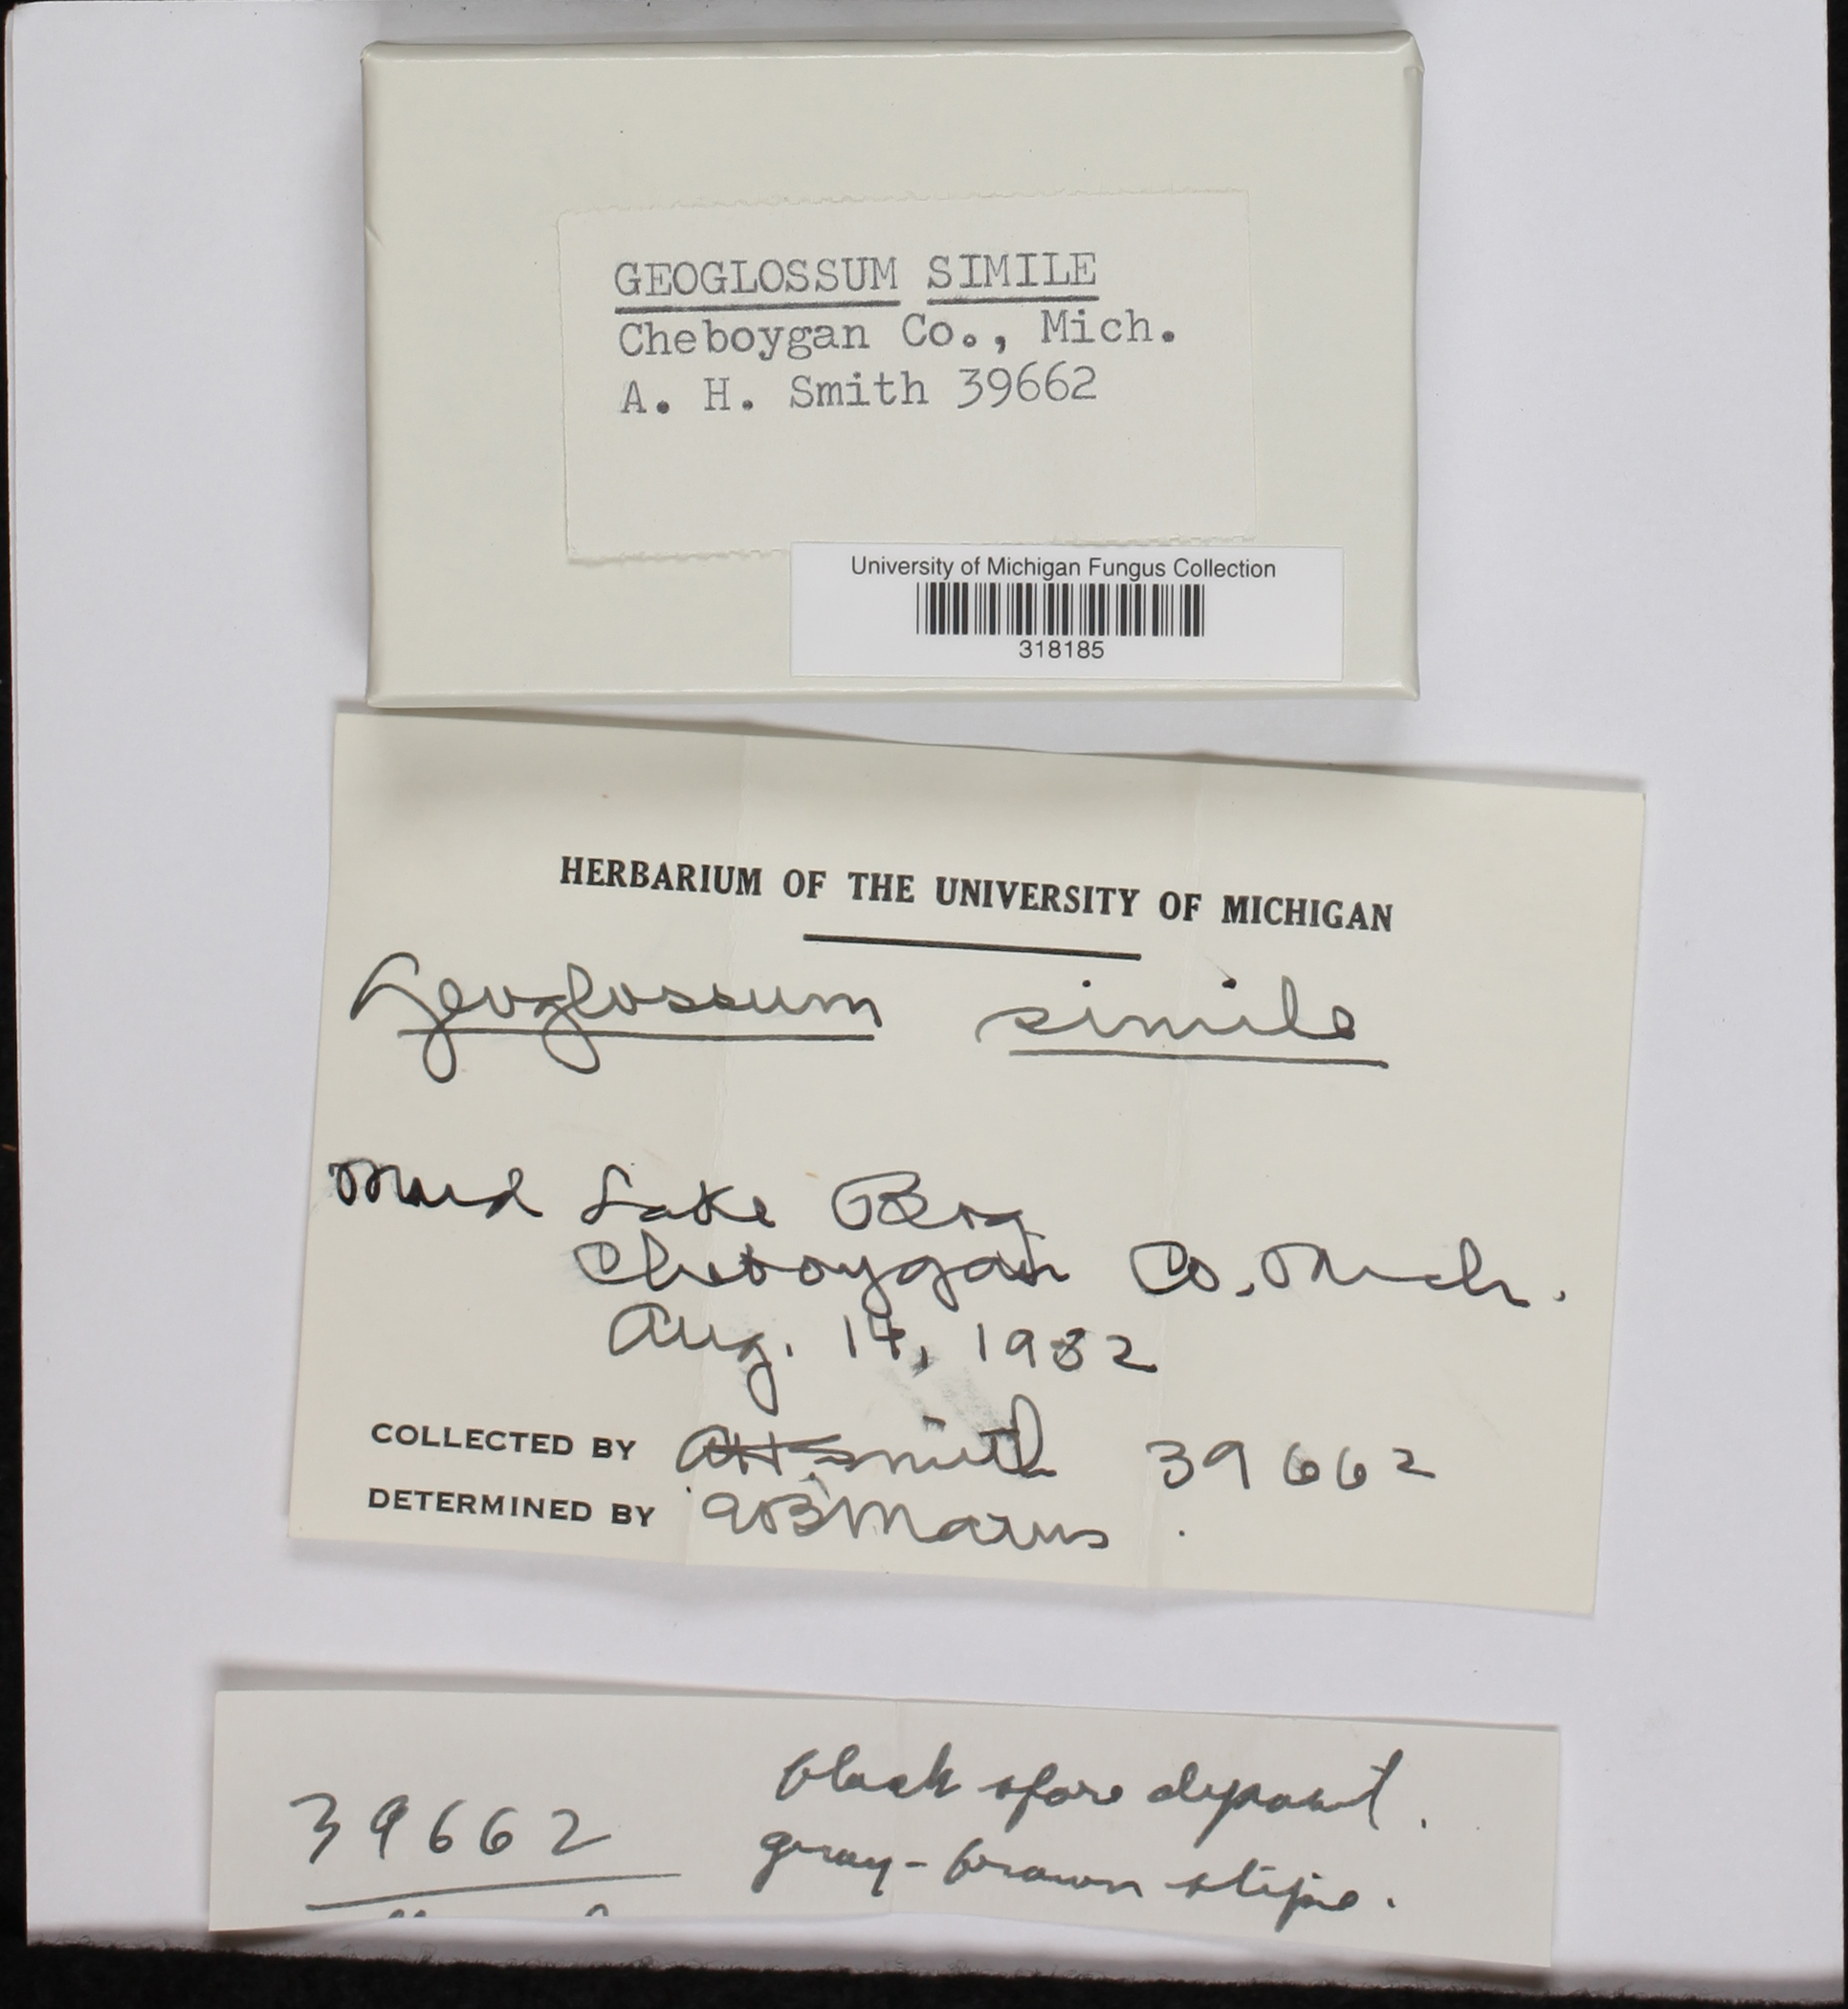 GEOGLOSSUM SIMILE
Cheboygan Co., Mich.
A. H. Smith 39662
University of Michigan Fungus Collection
318185
HERBARIUM OF THE UNIVERSITY OF MICHIGAN
Geoglossum simile
Mud Lake Bog
Cheboygan Co. Mich.
Aug. 14, 1952
COLLECTED BY AH Smith 39662
DETERMINED BY
39662
black spore deposit.
gray-brown stipe.